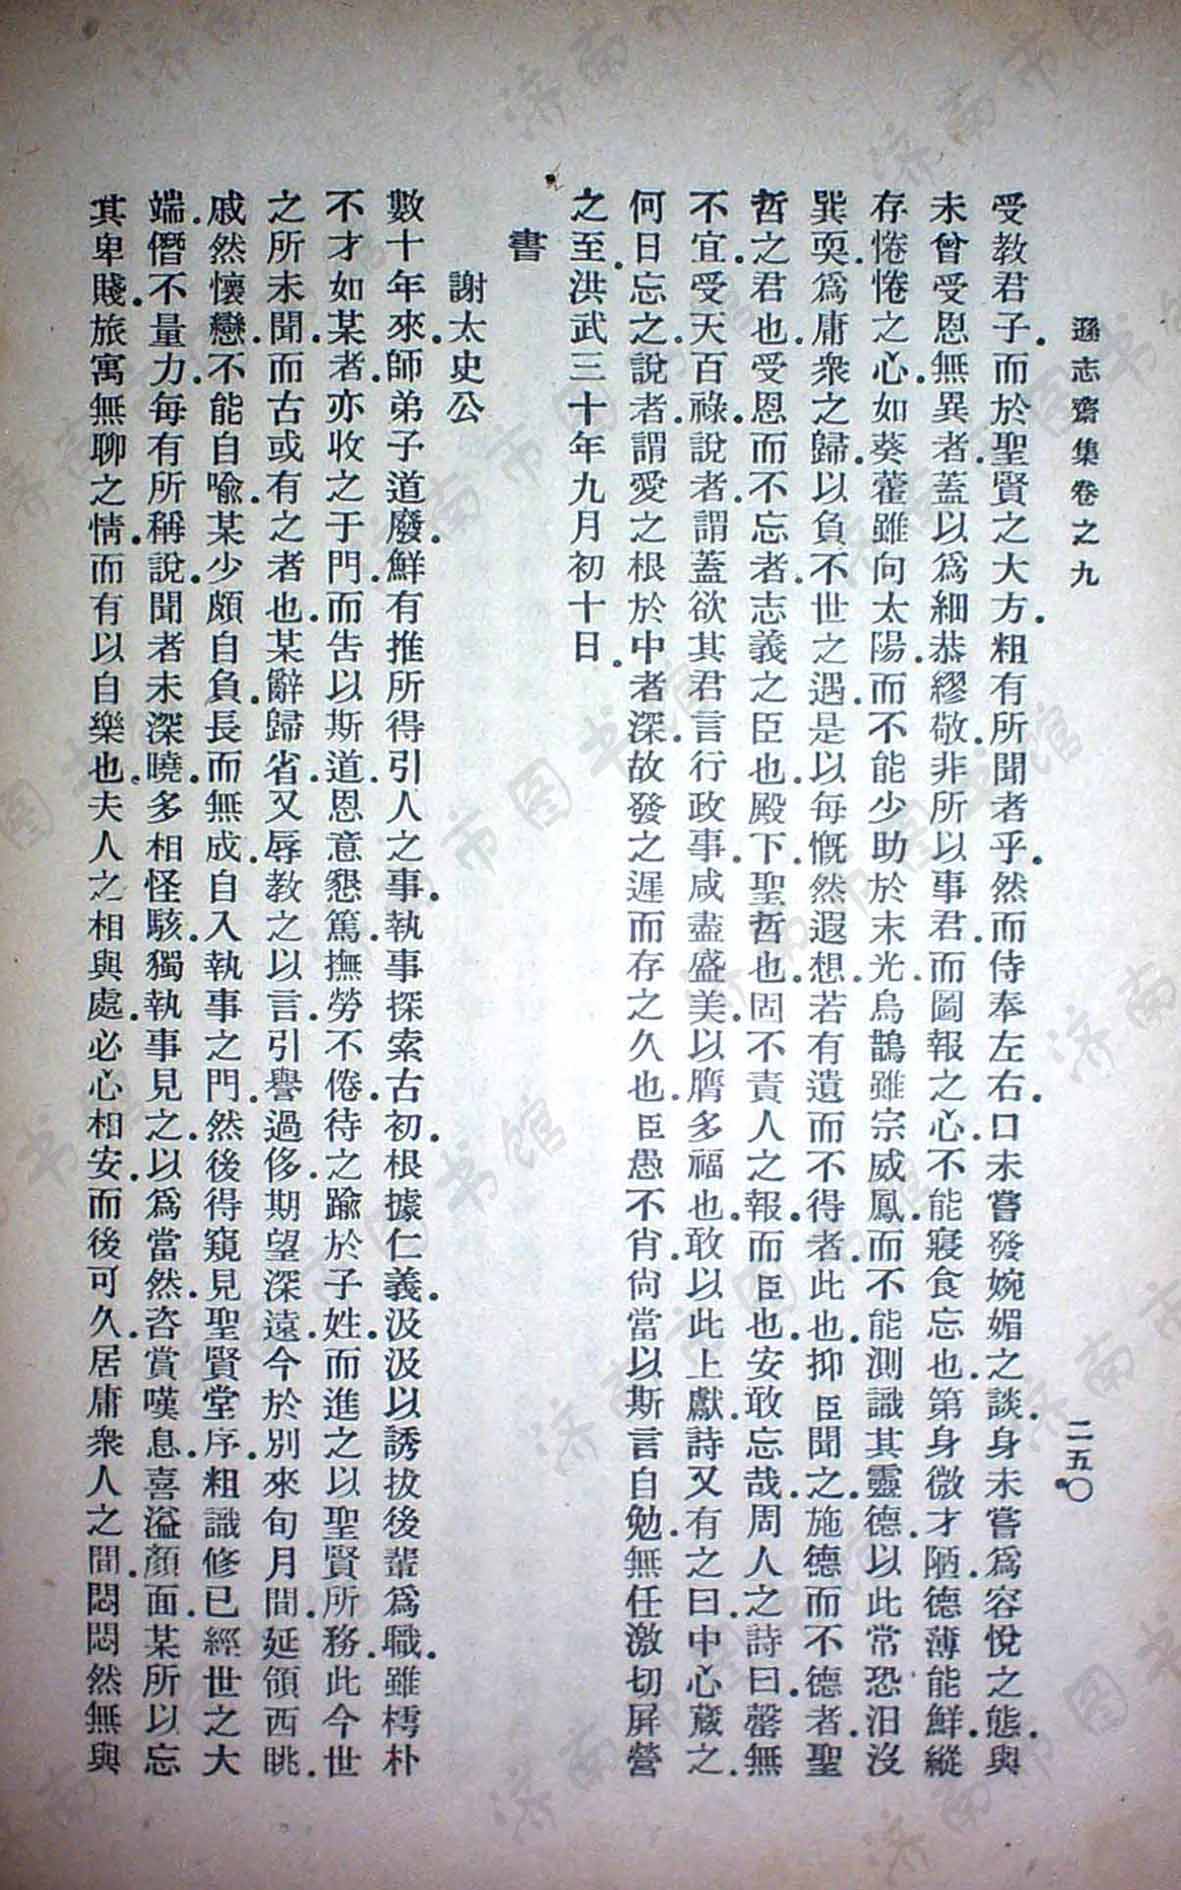 遜志齋集卷之九
二五〇
受教君子.而於聖賢之大方.粗有所聞者乎.然而侍奉左右.口未嘗發婉媚之談.身未嘗爲容悅之態.與
未曾受恩無異者.蓋以爲細恭繆敬.非所以事君.而圖報之心.不能寢食忘也.第身微才陋.德薄能鮮.縱
存惓惓之心.如葵藿雖向太陽.而不能少助於末光.烏鵲雖宗威鳳.而不能測識其靈德.以此常恐汨沒
巽耎.爲庸衆之歸.以負不世之遇.是以每慨然遐想.若有遺而不得者.此也.抑臣聞之.施德而不德者.聖
哲之君也.受恩而不忘者.志義之臣也.殿下.聖哲也.固不責人之報.而臣也.安敢忘哉.周人之詩曰.罄無
不宜.受天百祿.說者.謂蓋欲其君言行政事.咸盡盛美.以膺多福也.敢以此上獻.詩又有之曰.中心藏之.
何日忘之.說者.謂愛之根於中者深.故發之遲而存之久也.臣愚不肖.尙當以斯言自勉.無任激切屏營
之至.洪武三十年九月初十日.
書
謝太史公
數十年來.師弟子道廢.鮮有推所得引人之事.執事探索古初.根據仁義.汲汲以誘拔後輩爲職.雖樗朴
不才如某者.亦收之于門.而告以斯道.恩意懇篤.撫勞不倦.待之踰於子姓.而進之以聖賢所務.此今世
之所未聞.而古或有之者也.某辭歸省.又辱教之以言.引譽過侈.期望深遠.今於別來旬月間.延領西眺.
戚然懷戀.不能自喻.某少頗自負.長而無成.自入執事之門.然後得窺見聖賢堂序.粗識修己經世之大
端.僭不量力.每有所稱說.聞者未深曉.多相怪駭.獨執事見之.以爲當然.咨賞嘆息.喜溢顏面.某所以忘
其卑賤.旅寓無聊之情.而有以自樂也.夫人之相與處.必心相安.而後可久.居庸衆人之間.悶悶然無與